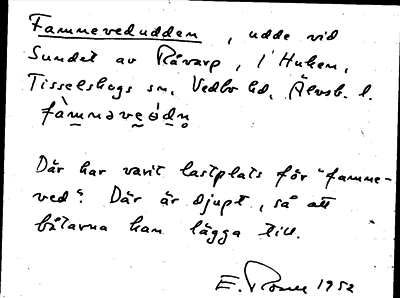 Fammevedudden, udde vid
Sundet av Råvarp, i Huken,
Tisselskogs sn, Vedbo hd, Älvsb. l.
fàmməveə́dn̥
Där har varit lastplats för "famme-
ved". Där är djupt, så att
båtarna kan lägga till.
E. 1952